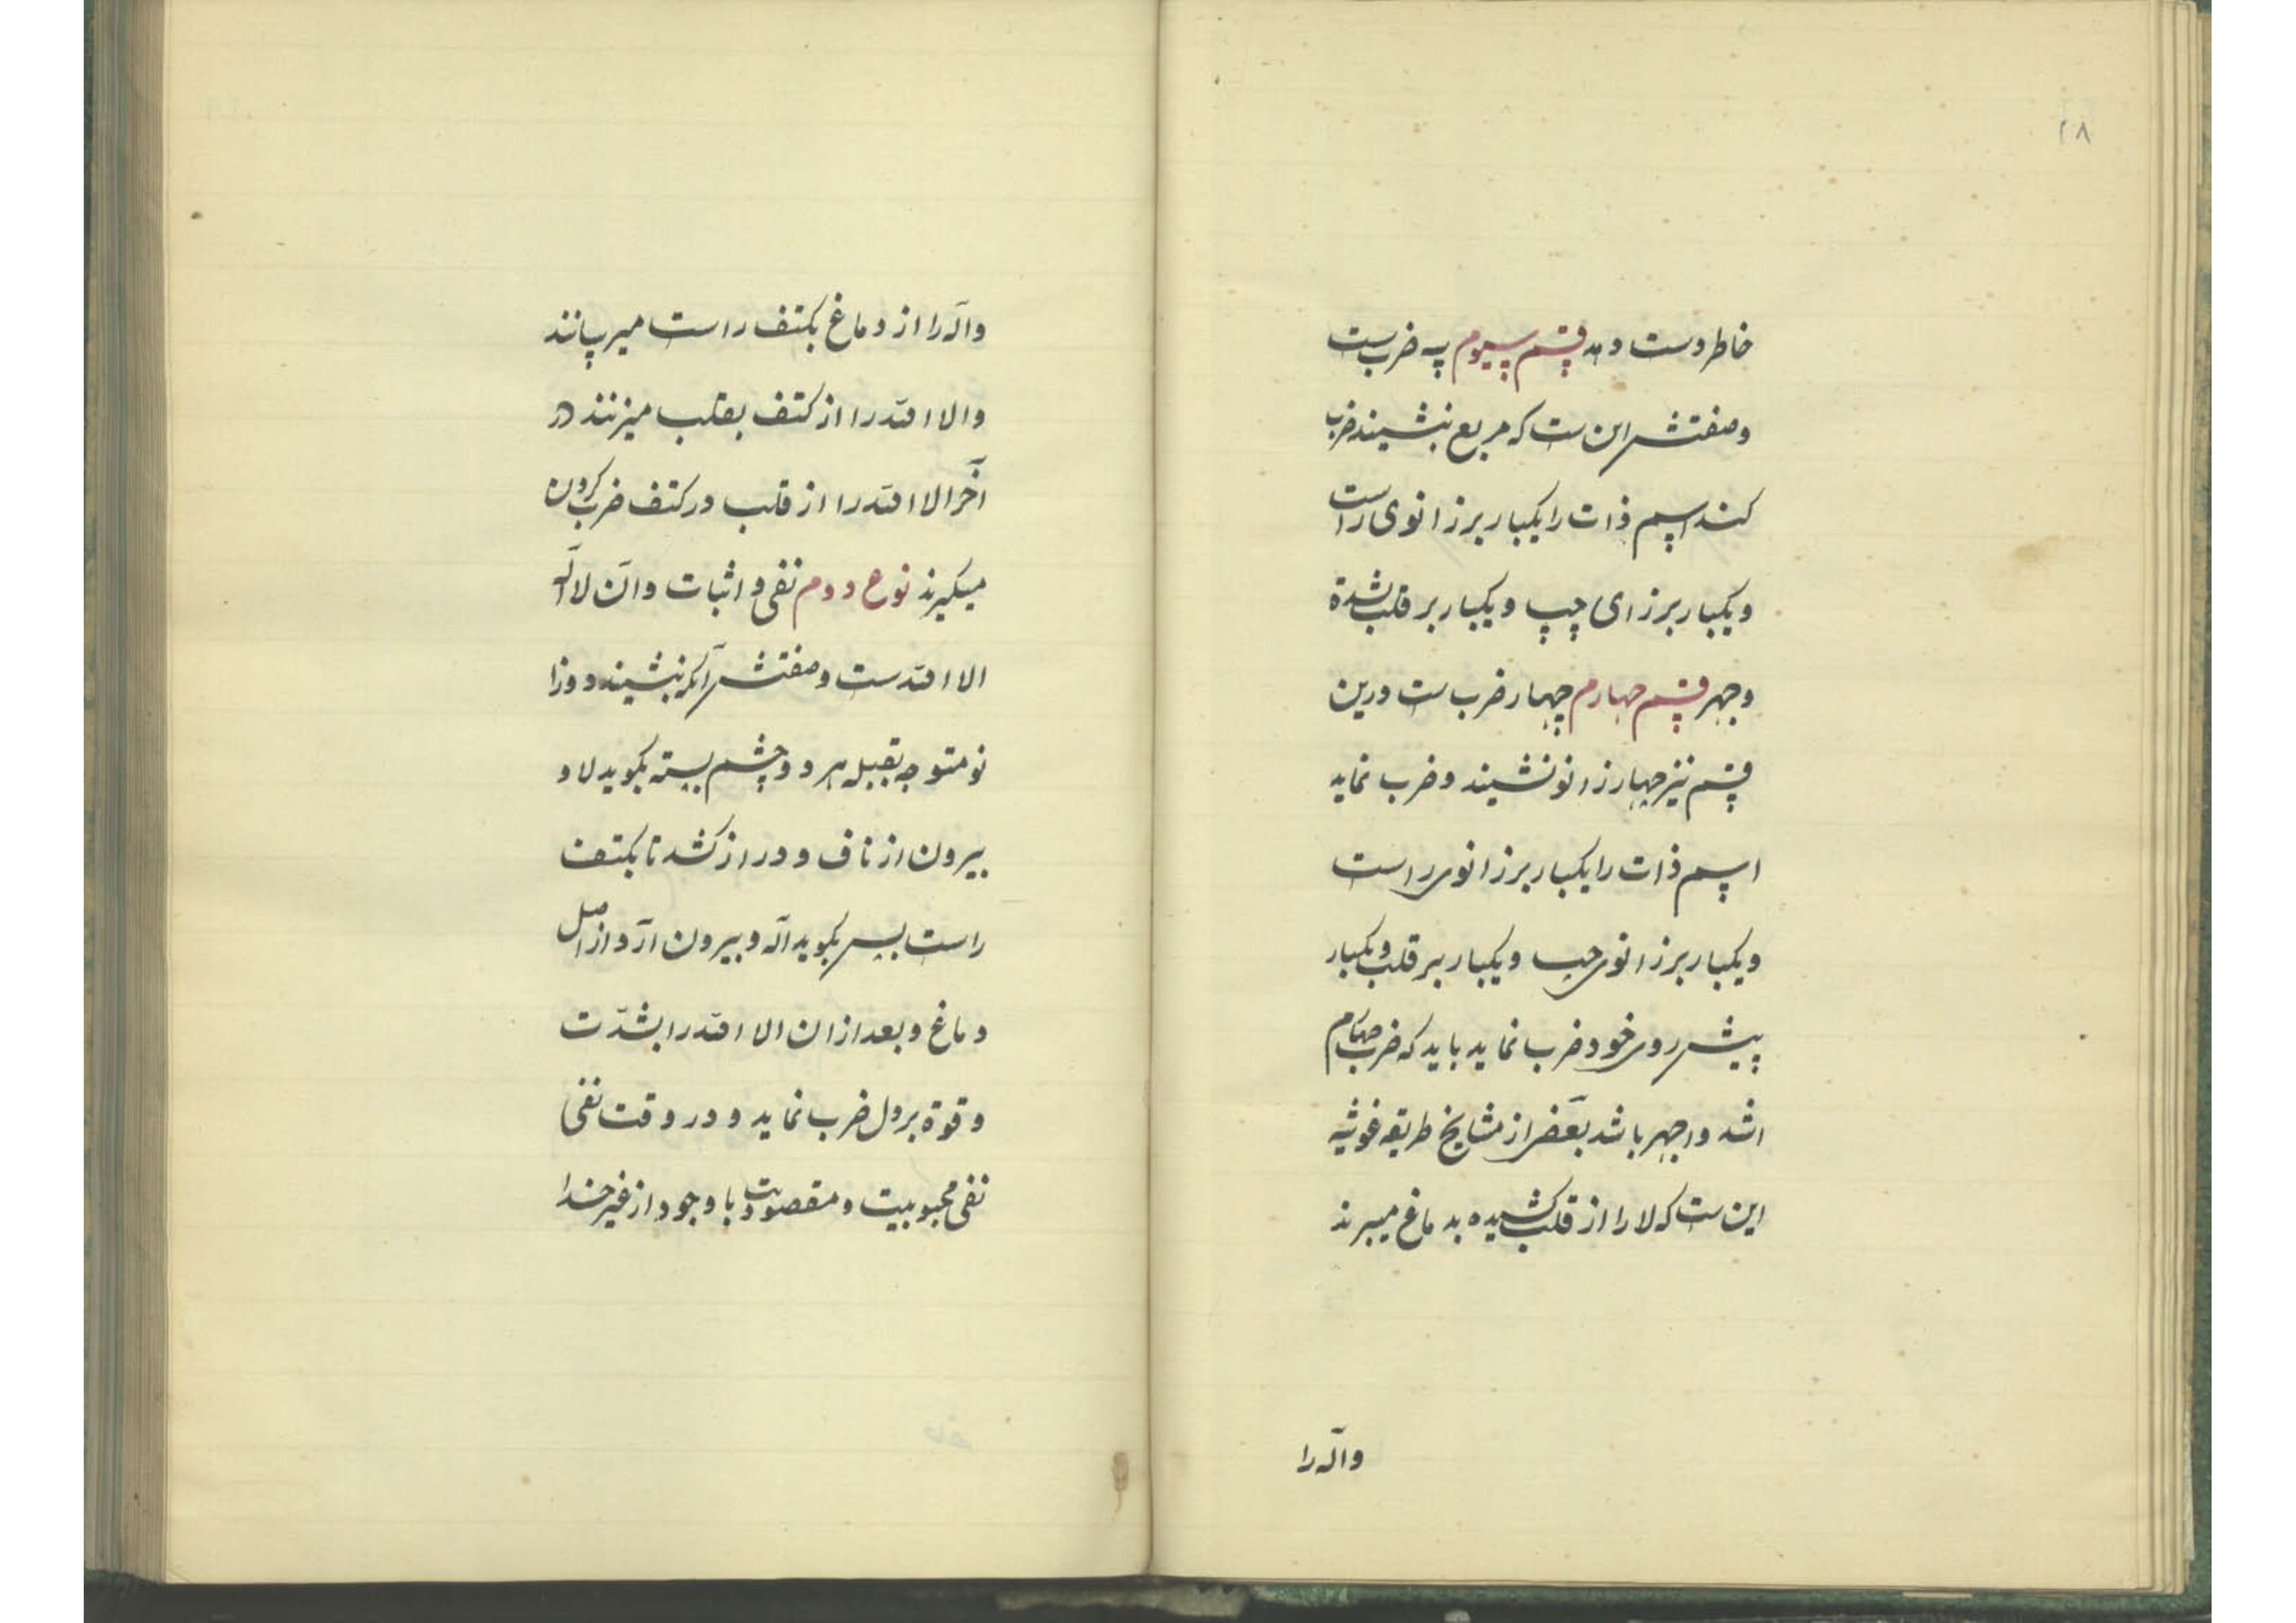 ۲۸
خاطر دست دهد قسم سیوم سه ضرب ست
وصفتش این ست که مربع بنشیند ضرب
کند اسم ذات را یکبار بر زانوی راست
ویکبار بر زای چپ ویکبار بر قلب بشدة
وجهر قسم چهارم چهار ضرب ست درین
قسم نیز چهار زانو نشیند وضرب نماید
اسم ذات را یکبار بر زانوی راست
ویکبار بر زانوی چپ ویکبار بر قلب ویکبار
پیش روی خود ضرب نماید باید که ضرب چهارم
اشد واجهر باشد بعضی از مشایخ طریقه غوثیه
این ست که لا را از قلب کشیده بدماغ میبرند
واله را
واله را از دماغ بکتف راست میرسانند
والا الله را از کتف بقلب میزنند در
آخر الا الله را از قلب در کتف ضرب کردن
میگیرند نوع دوم نفی و اثبات وآن لا اله
الا الله ست وصفتش آنکه بنشیند دوزا
نو متوجه بقبله هر دو چشم بسته بگوید لا و
بیرون از ناف و دراز کشد تا بکتف
راست پس بگوید اله وبیرون آرد از اصل
دماغ وبعد ازان الا الله را بشدّت
وقوة بر دل ضرب نماید و در وقت نفی
نفی محبوبیت ومقصودیت با وجود از غیر خدا